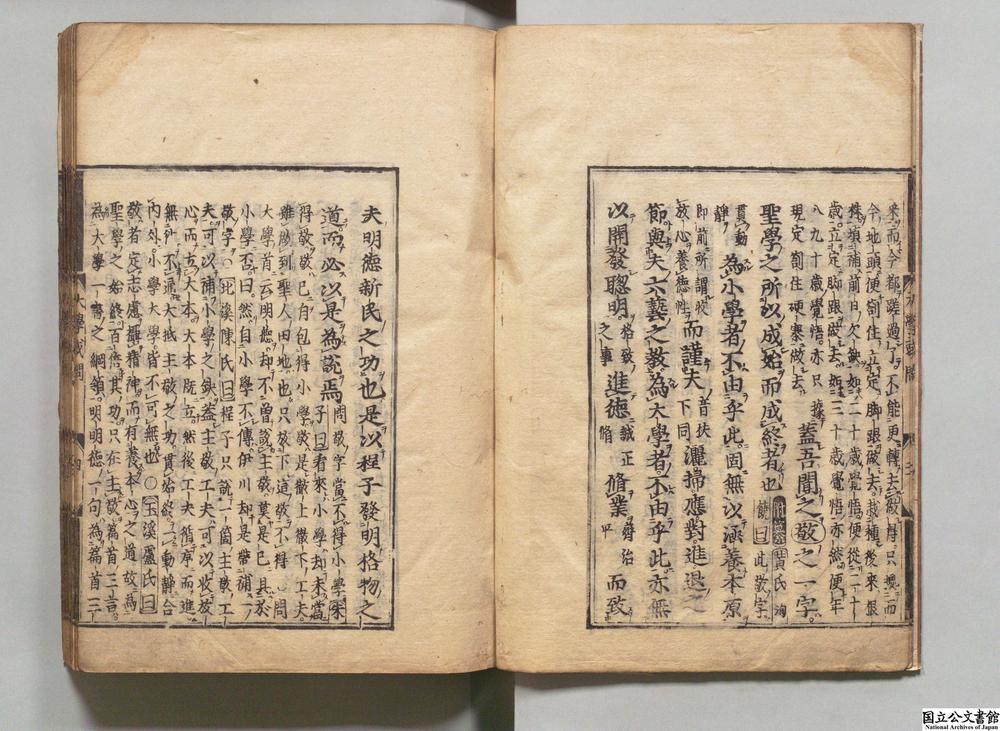 來而今都蹉過了不能更轉去做得只據而
今地頭便劄住立定脚跟做去栽種後來根
株塡補前日欠缺如二十歲覺悟便從二十
歲立定脚跟做去如三十歲覺悟亦然便年
八九十歲覺悟亦只據
現定劄住硬寨做去 蓋吾聞之敬之一字
聖學之所以成始而成終者也 附纂 黃氏洵饒曰此敬字
貫動靜 爲小學者不由乎此固無以涵養本原
即前所謂收放心養德性 而謹夫 音扶下同 灑掃應對進退之
節與夫六藝之敎爲大學者不由乎此亦無
以開發聰明 格致之事 進德 誠正修 脩業 齊治平 而致
夫明德新民之功也是以程子發明格物之
道而必以是爲說焉 問敬字當不得小學朱子曰看來小學却未當
得敬敬已自包得小學敬是徹上徹下工夫
雖做到聖人田地也只放下這敬不得 問
大學首云明德却不曾說主敬莫是已具於
小學否曰然自小學不傳伊川却是帶補一
敬字○北溪陳氏曰程子只說一箇主敬工
夫可以補小學之缺蓋主敬工夫可以收放
心而立大本大本旣立然後工夫循序而進
無徃不通大抵主敬之功貫始終一動靜合
內外小學大學皆不可無也○玉溪盧氏曰
敬者定志慮攝精神而有養本心之道故爲
聖學之始終百倍其功只在主敬篇首三言
爲大學一書之綱領明明德一句爲篇首三
大學或問
四
国立公文書館
National Archives of Japan